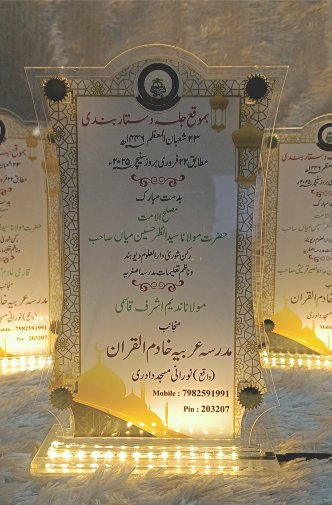 بموقع جلسہ دستار بندی
۲۳ شعبان المعظم ۱۴۴۶ھ
مطابق ۲۲ فروری بروز سنیچر ۲۰۲۵ء
بدست مبارک
مصلح الامت
حضرت مولانا سید انظر حسین میاں صاحب
رکن شوری دارالعلوم دیوبند
وناظم تعلیمات مدرسہ اصغریہ
مولانا ندیم اشرف قاسمی
منجانب
مدرسہ عربیہ خادم القران
(واقع) نورانی مسجد دادری
Mobile : 7982591991
Pin : 203207
7982591991
Pin : 203207